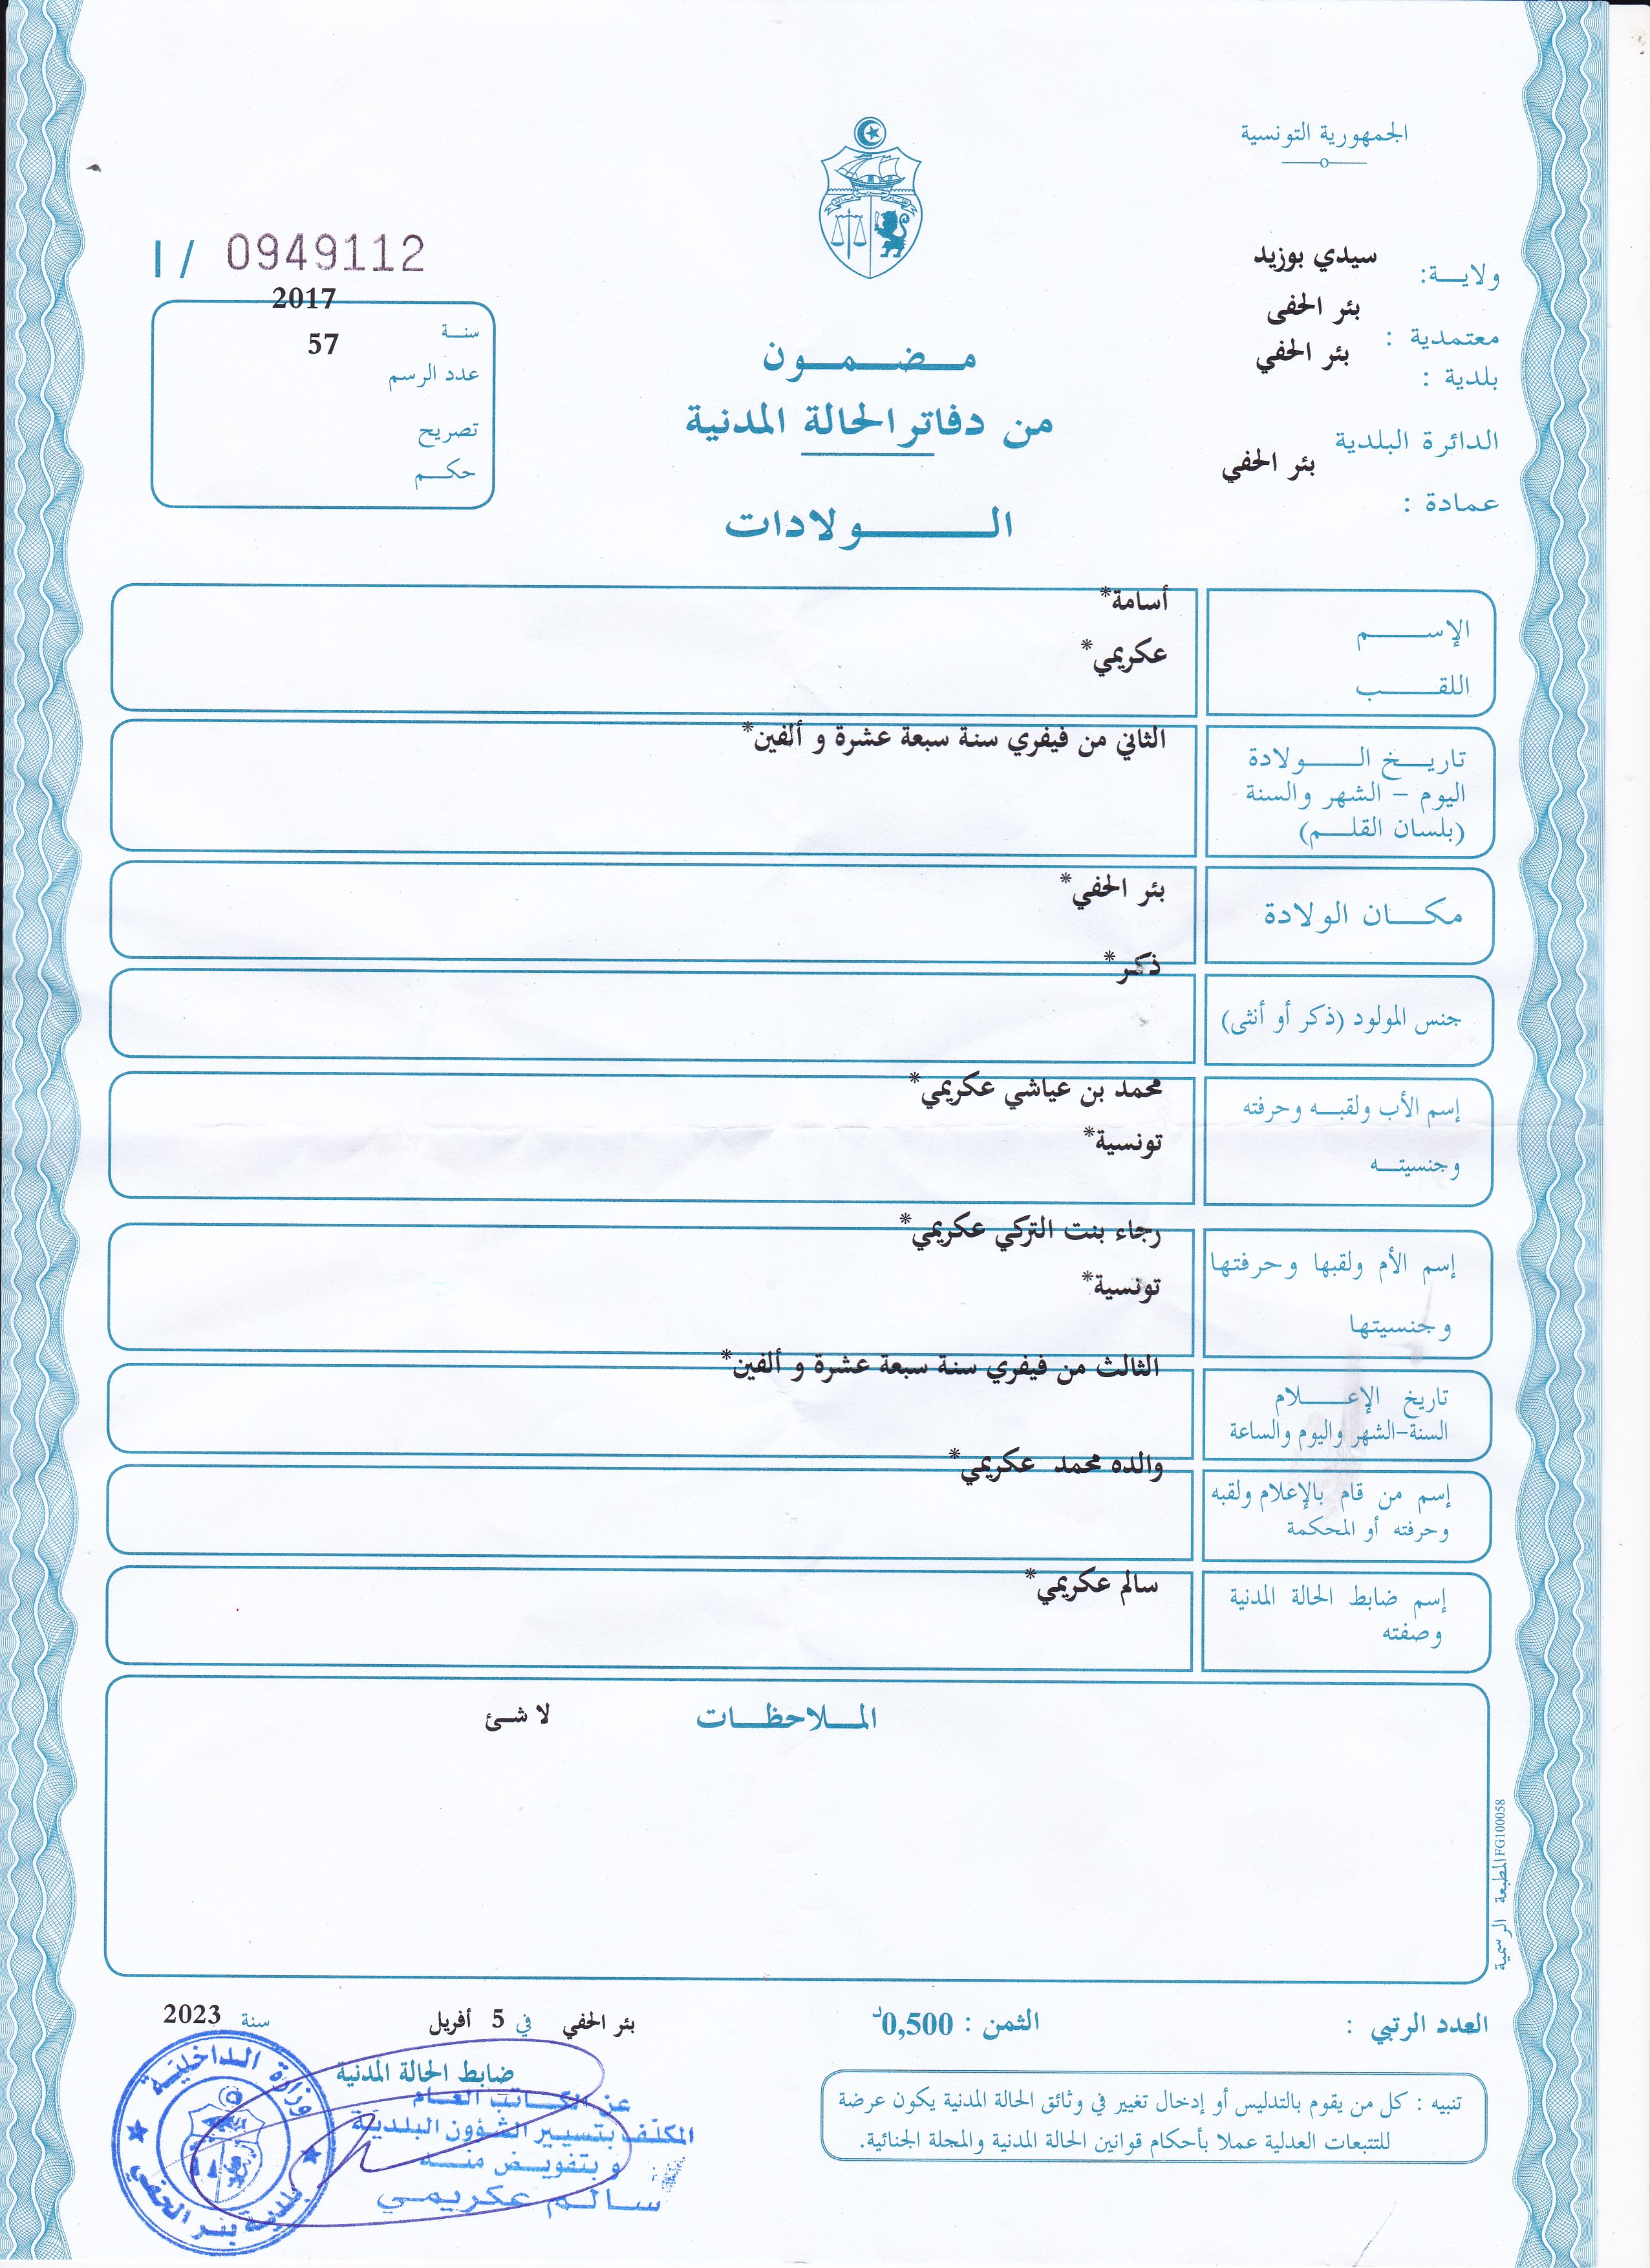 الجمهورية التونسية
ولايــة: سيدي بوزيد
معتمدية : بئر الحفى
بلدية : بئر الحفي
الدائرة البلدية بئر الحفي
عمادة :
I / 0949112
سنــة 2017
عدد الرسم 57
تصريح
حكــم
مـضـمـون
من دفاتر الحالة المدنية
الـولادات
الإســـم أسامة*
اللقـــب عكريمي*
تاريـخ الــولادة
اليوم - الشهر والسنة
(بلسان القلــم)
الثاني من فيفري سنة سبعة عشرة و ألفين*
مكــان الولادة بئر الحفي*
جنس المولود (ذكر أو أنثى) ذكر*
إسم الأب ولقبــه وحرفته محمد بن عياشي عكريمي*
وجنسيتــه تونسية*
إسم الأم ولقبها وحرفتها رجاء بنت التركي عكريمي*
وجنسيتها تونسية*
تاريخ الإعــلام
السنة-الشهر واليوم والساعة
الثالث من فيفري سنة سبعة عشرة و ألفين*
إسم من قام بالإعلام ولقبه
وحرفته أو المحكمة
والده محمد عكريمي*
إسم ضابط الحالة المدنية
وصفته
سالم عكريمي*
المـلاحظـات لا شئ
المطبعة الرسمية FG100058
العدد الرتبي :
الثمن : 0,500د
بئر الحفي في 5 أفريل سنة 2023
ضابط الحالة المدنية
عن الكـاتب العـام
المكلف بتسيير الشؤون البلدية
و بتفويض منه
سـالـم عكريمـي
وزارة الداخلية
بلدية بئر الحفي
تنبيه : كل من يقوم بالتدليس أو إدخال تغيير في وثائق الحالة المدنية يكون عرضة
للتتبعات العدلية عملا بأحكام قوانين الحالة المدنية والمجلة الجنائية.